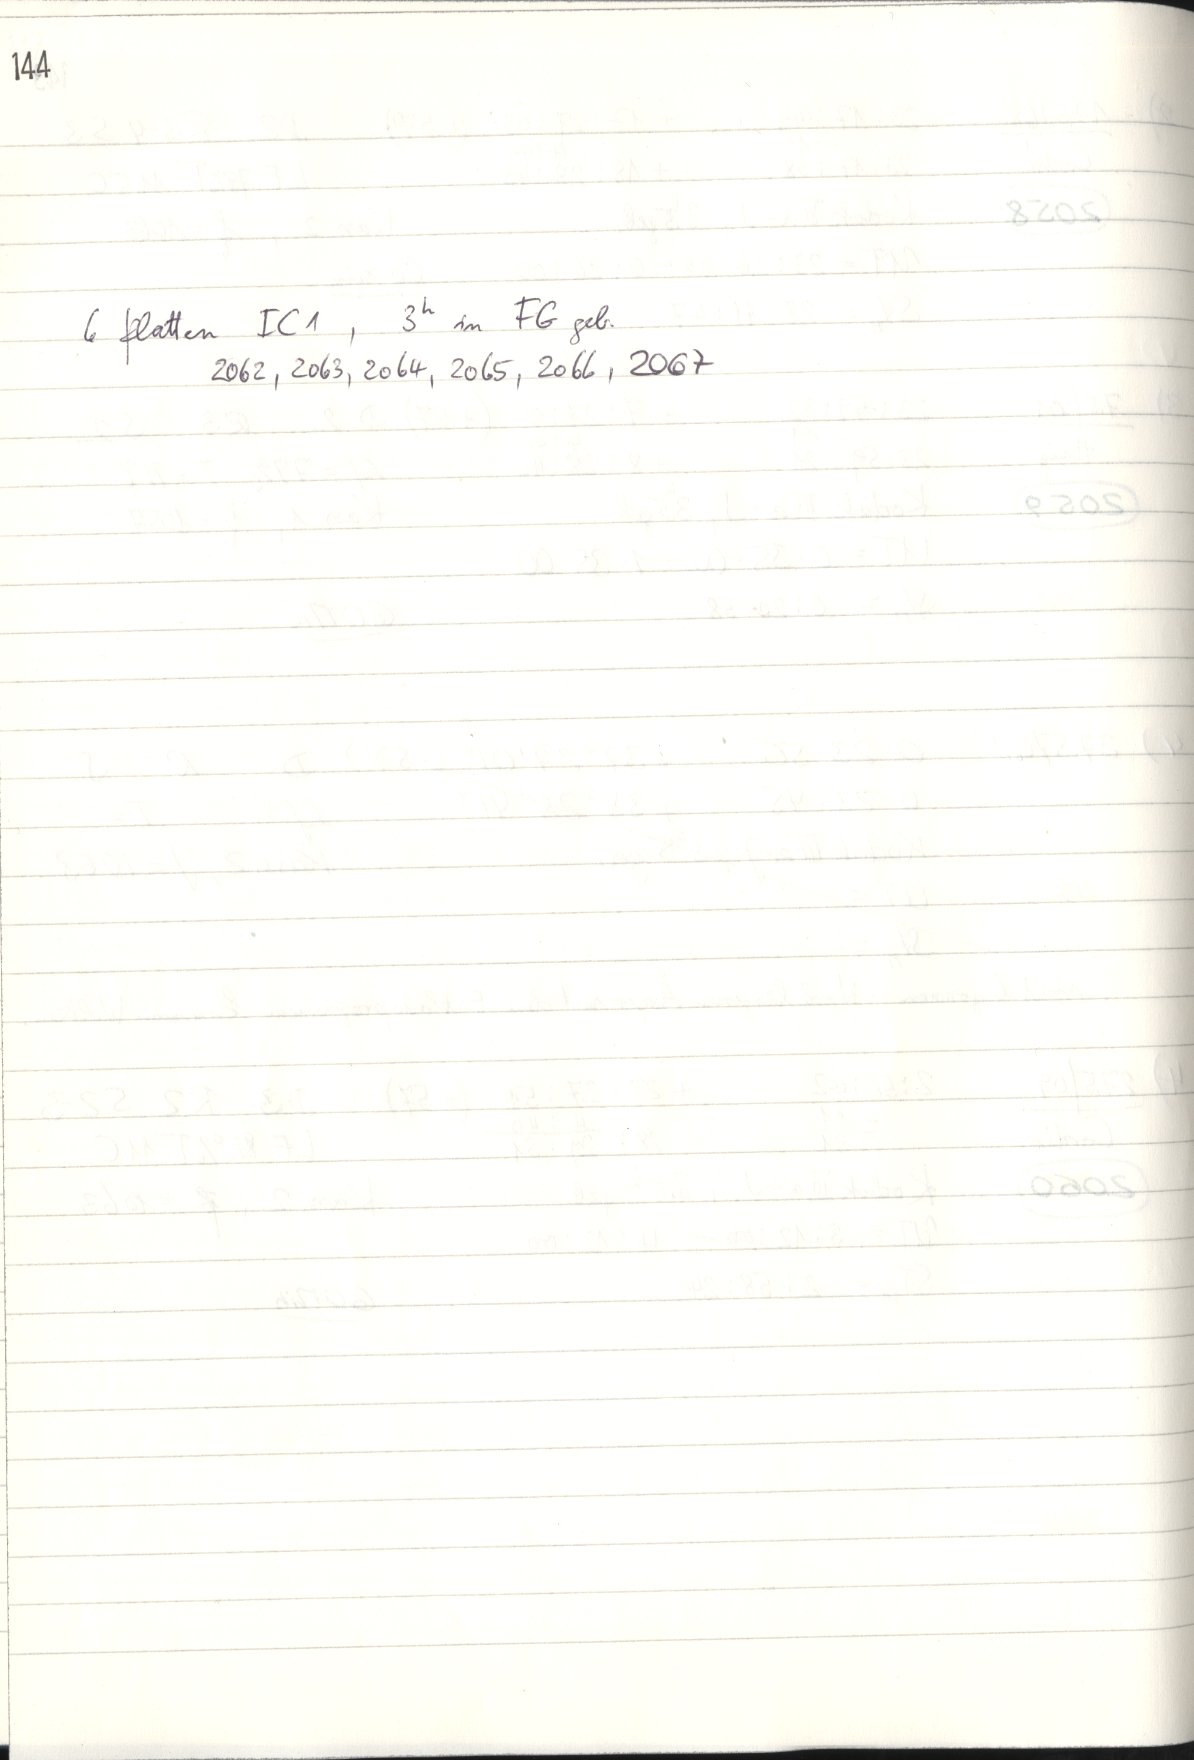 144
6 Platten IC1, 3ʰ in FG geb.
2062, 2063, 2064, 2065, 2066, 2067